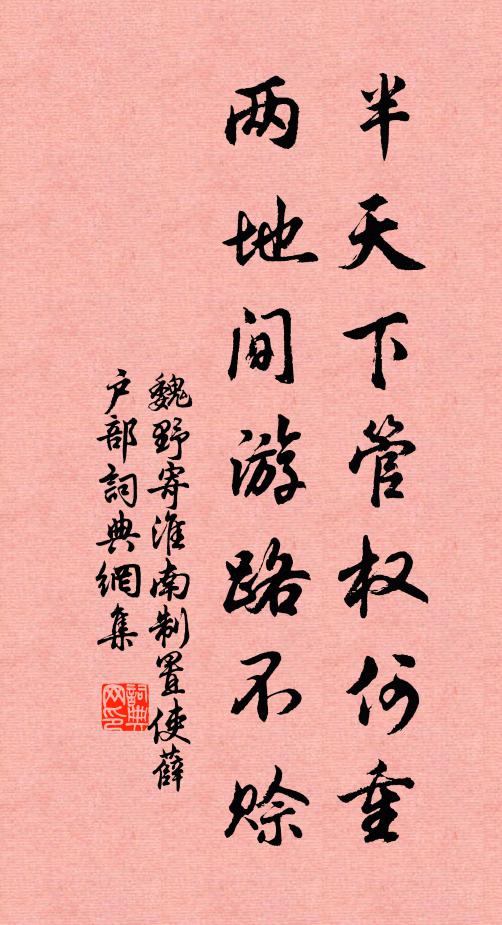 半天下管权何重
两地间游路不赊
魏野寄淮南制置使薛
户部詞典網集
詞典网印